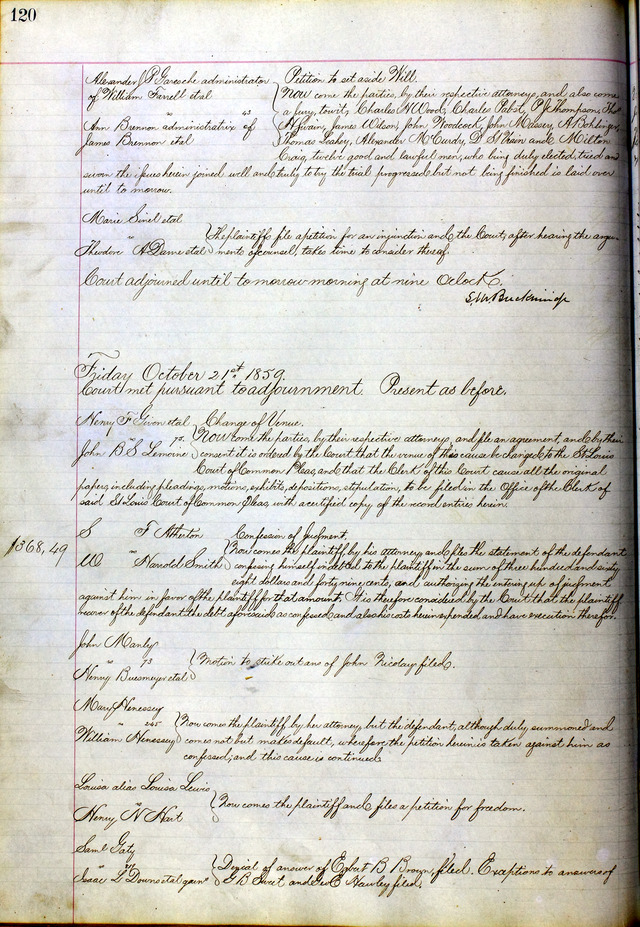 120
Alexander P Garesche administrator Petition to set aside Will.
of William Ferrell etal Now come the parties, by their respective attorneys, and also come
" 43 a jury, towit, Charles H Wood, Charles Pabst, P Thompson, Tho
Ann Brennon administratrix of H Swain, James Wilson, John Woodcock, John Massey, A Bohlinger,
James Brennon etal Thomas Leahy, Alexander McCurdy, D Strain and Milton
Craig, twelve good and lawful men, who being duly elected, tried and
sworn the issues herein joined well and truly to try the trial progressed but not being finished is laid over
until to morrow.
Marie Sinel etal
" The plaintiffs file a petition for an injunction and the Court, after hearing the argu
Theodore Dame etal ments of counsel, takes time to consider thereof.
Court adjourned until tomorrow morning at nine Oclock.
Friday October 21st 1859.
Court met pursuant to adjournment. Present as before.
Henry F etal Change of Venue.
" 70. Now come the parties, by their respective attorneys, and file an agreement, and by their
John B S Lemoine consent it is ordered by the Court that the venue of this cause be changed to the St Louis
Court of Common Pleas, and that the Clerk of this Court cause, all the original
papers, including pleadings, motions, exhibits, depositions, stipulation, to be filed in the Office of the Clerk of
said St Louis Court of Common Pleas, with a certified copy of the record entries herein.
S F Atherton Confession of Judgment.
$368,49 " Now comes the plaintiff by his attorney and files the statement of the defendant
W Harrold Smith confessing himself indebted to the plaintiff in the sum of three hundred and sixty
eight dollars and forty nine cents, and authorizing the entering up of judgment
against him in favor of the plaintiff for that amount. It is therefore considered by the Court that the plaintiff
recover of the defendant the debt aforesaid as confessed and also his costs herein expended, and have execution therefor.
John Manly
" 73 Motion to strike out ans of John Nicolay filed.
Henry Buesmeyer etal
Mary Henessey
" 245 Now comes the plaintiff by her attorney, but the defendant, although duly summoned and
William Henessey comes not but makes default, wherefore the petition herein is taken against him as
confessed, and this cause is continued.
Louisa alias Louisa Lewis
" Now comes the plaintiff and files a petition for freedom.
Henry N Hart
Saml Gaty
" Denial of answer of Egbert B Brown, filed. Exceptions to answers of
Isaac L Downs etal garns G B and Hawley filed.